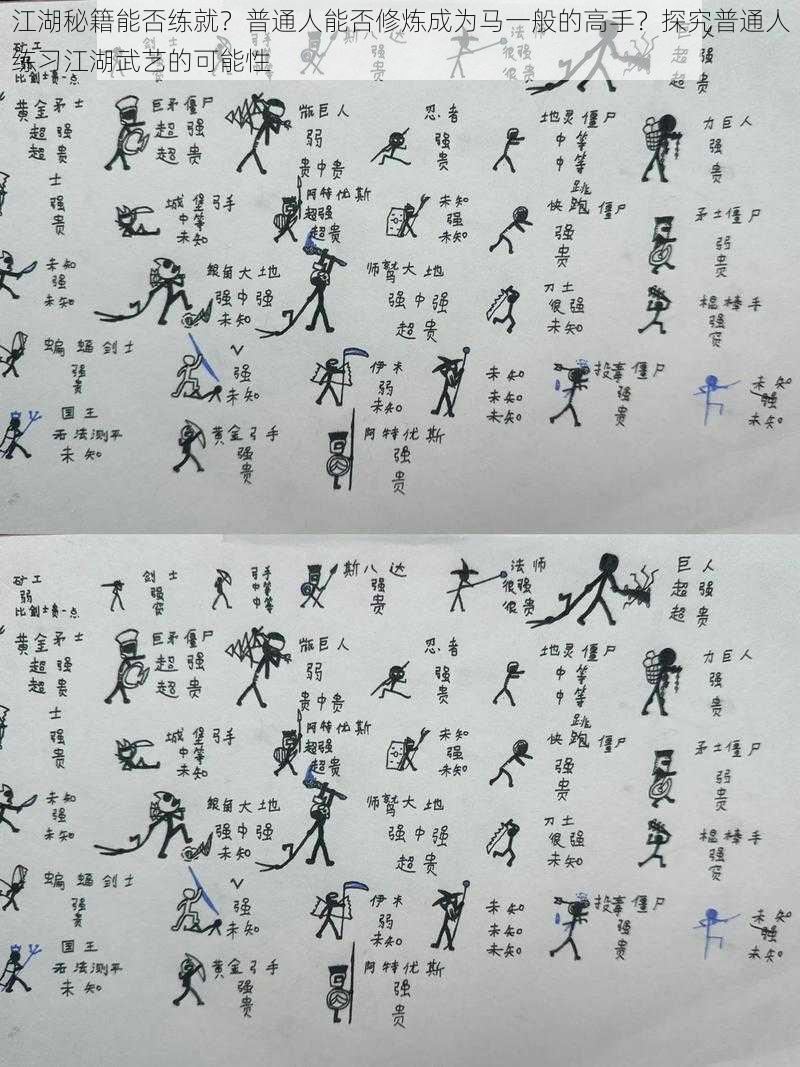 江湖秘籍能否练就？普通人能否修炼成为马一般的高手？探究普通人
练习江湖武艺的可能性
矿工
比剑士贵一点
超强
超贵
黄金矛士
超强
超贵
巨矛僵尸
超强
超贵
巨人
弱
贵中贵
忍者
强
贵
地灵僵尸
中等
中等
力巨人
强
贵
士
强
贵
城堡弓手
中等
未知
阿特优斯
超强
超贵
未知
强
未知
跳
快跑僵尸
强
贵
矛士僵尸
弱
贵
未知
强
未知
银角大地
强中强
未知
师鹫大地
强中强
超贵
刀士
很强
未知
棍棒手
强
贵
蝙蝠剑士
强
贵
V
强
未知
伊木
弱
未知
未知
未知
未知
投毒僵尸
强
贵
未知
强
未知
国王
无法测平
未知
黄金弓手
强
贵
阿特优斯
强
贵
矿工
弱
比剑士贵一点
剑士
强
贵
弓手
中等
中等
斯八达
强
贵
法师
很强
很贵
巨人
超强
超贵
黄金矛士
超强
超贵
巨矛僵尸
超强
超贵
巨人
弱
贵中贵
忍者
强
贵
地灵僵尸
中等
中等
力巨人
强
贵
士
强
贵
城堡弓手
中等
未知
阿特优斯
超强
超贵
未知
强
未知
跳
快跑僵尸
强
贵
矛士僵尸
弱
贵
未知
强
未知
银角大地
强中强
未知
师鹫大地
强中强
超贵
刀士
很强
未知
棍棒手
强
贵
蝙蝠剑士
强
贵
V
强
未知
伊木
弱
未知
未知
未知
未知
投毒僵尸
强
贵
未知
强
未知
国王
无法测平
未知
黄金弓手
强
贵
阿特优斯
强
贵